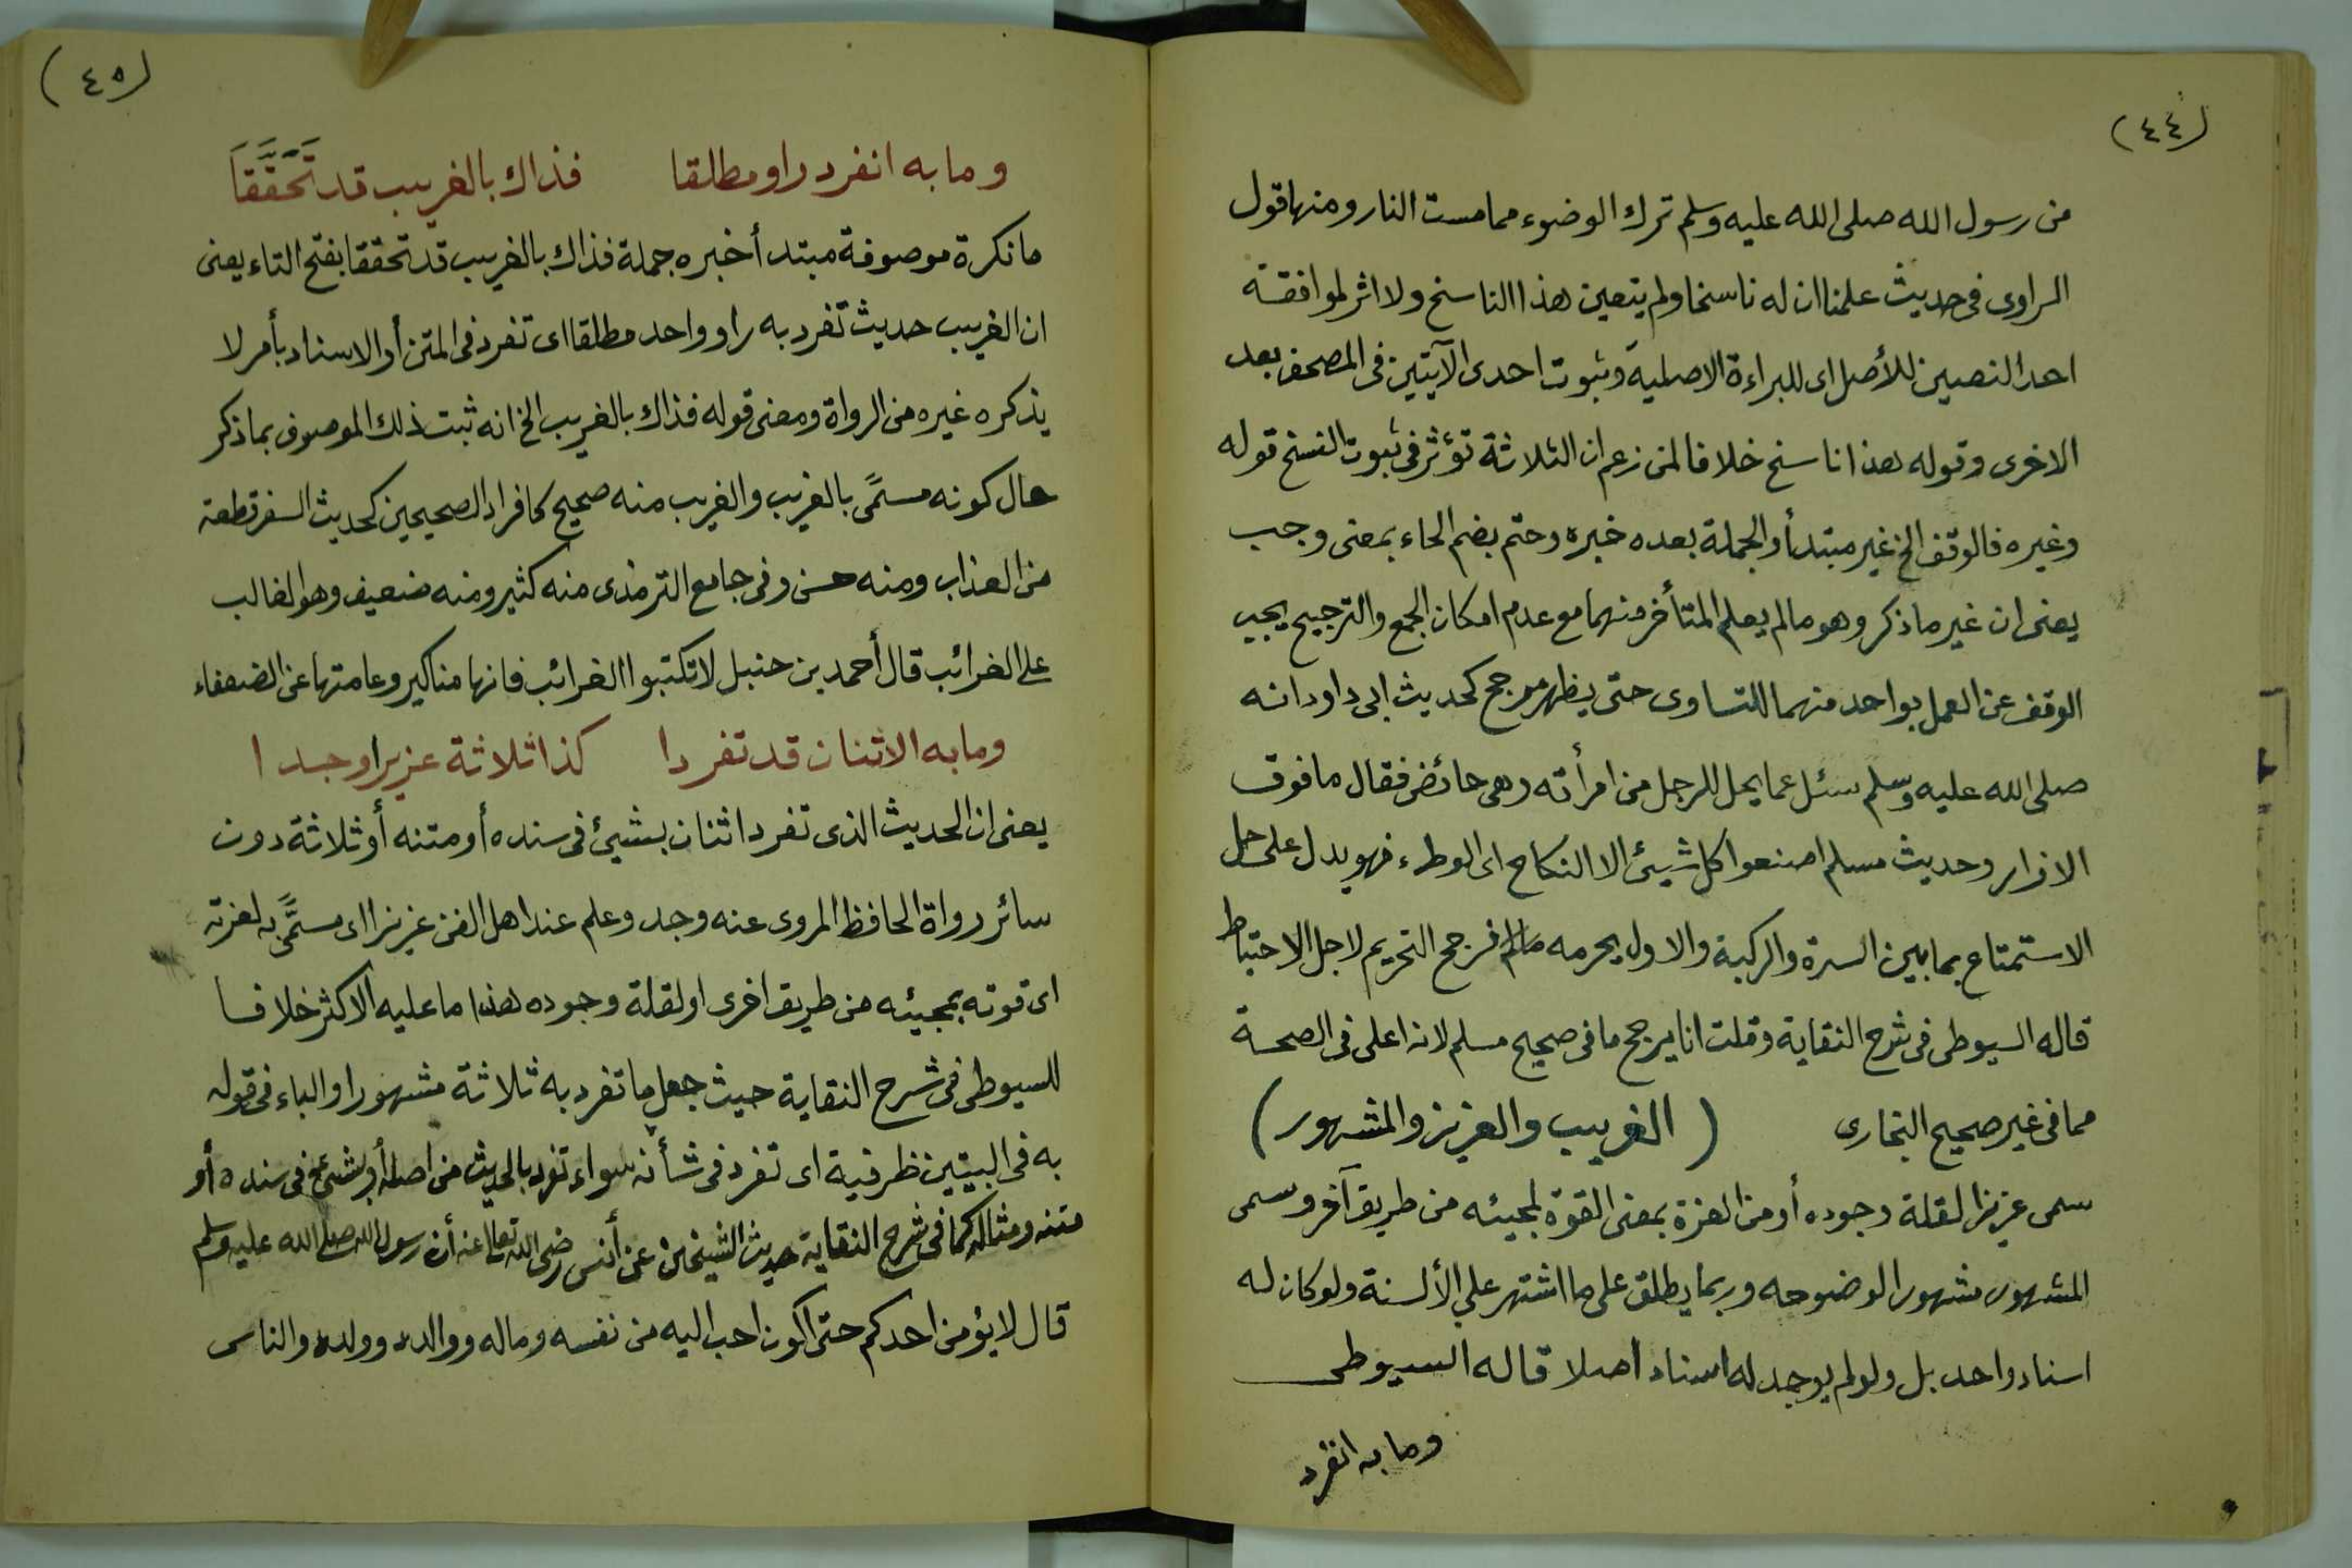 (٤٤)
من رسول الله صلى الله عليه وسلم ترك الوضوء مما مست النار ومنها قول
الراوى فى حديث علمنا ان له ناسخا ولم يتعين هذا الناسخ ولا اثر لموافقة
احد النصين للأصل اى للبراءة الاصلية وثبوت احدى الآيتين فى المصحف بعد
الاخرى وقوله هذا ناسخ خلافا لمن زعم ان الثلاثة تؤثر فى ثبوت النسخ قوله
وغيره فالوقف الخ غير مبتدأ والجملة بعده خبره وحتم بضم الحاء بمعنى وجب
يعنى ان غير ما ذكر وهو ما لم يعلم المتأخر منهما مع عدم امكان الجمع والترجيح يجب
الوقف عن العمل بواحد منهما للتساوى حتى يظهر مرجح كحديث ابى داود انه
صلى الله عليه وسلم سئل عما يحل للرجل من امرأته وهى حائض فقال ما فوق
الازار وحديث مسلم اصنعوا كل شيئ الا النكاح اى الوطء فهو يدل على حل
الاستمتاع بما بين السرة والركبة والاول يحرمه فرجح التحريم لاجل الاحتياط
قاله السيوطى فى شرح النقاية وقلت انا يرجح ما فى صحيح مسلم لانه اعلى فى الصحة
مما فى غير صحيح البخارى (الغريب والعزيز والمشهور)
سمى عزيزا لقلة وجوده أو من العزة بمعنى القوة لمجيئه من طريق آخر وسمى
المشهور مشهورا لوضوحه وربما يطلق على ما اشتهر على الألسنة ولو كان له
اسناد واحد بل ولو لم يوجد له اسناد اصلا قاله السيوطى
وما به انفرد
(٤٥)
وما به انفرد راو مطلقا فذاك بالغريب قد تَحَقَّقَا
ما نكرة موصوفة مبتدأ خبره جملة فذاك بالغريب قد تحققا بفتح التاء يعنى
ان الغريب حديث تفرد به راو واحد مطلقا اى تفرد فى المتن أو الاسناد بأمر لا
يذكره غيره من الرواة ومعنى قوله فذاك بالغريب الخ انه ثبت ذلك الموصوف بما ذكر
حال كونه مسمًى بالغريب والغريب منه صحيح كافراد الصحيحين كحديث السفر قطعة
من العذاب ومنه حسن وفى جامع الترمذى منه كثير ومنه ضعيف وهو الغالب
على الغرائب قال أحمد بن حنبل لا تكتبوا الغرائب فانها مناكير وعامتها عن الضعفاء
وما به الاثنان قد تفردا كذا ثلاثة عزيزا وجدا
يعنى ان الحديث الذى تفرد اثنان بشيئ فى سنده أو متنه أو ثلاثة دون
سائر رواة الحافظ المروى عنه وجد وعلم عند اهل الفن عزيزا اى مسمًّى به لعزته
اى قوته بمجيئه من طريق اخرى او لقلة وجوده هذا ما عليه الاكثر خلافا
للسيوطى فى شرح النقاية حيث جعل ما تفرد به ثلاثة مشهورا والباء فى قوله
به فى البيتين ظرفية اى تفرد فى شأنه سواء تفرد بالحديث من اصله أو بشيئ فى سنده أو
متنه ومثاله كما فى شرح النقاية حديث الشيخين عن أنس رضى الله تعالى عنه أن رسول الله صلى الله عليه وسلم
قال لا يؤمن احدكم حتى اكون احب اليه من نفسه وماله ووالده وولده والناس